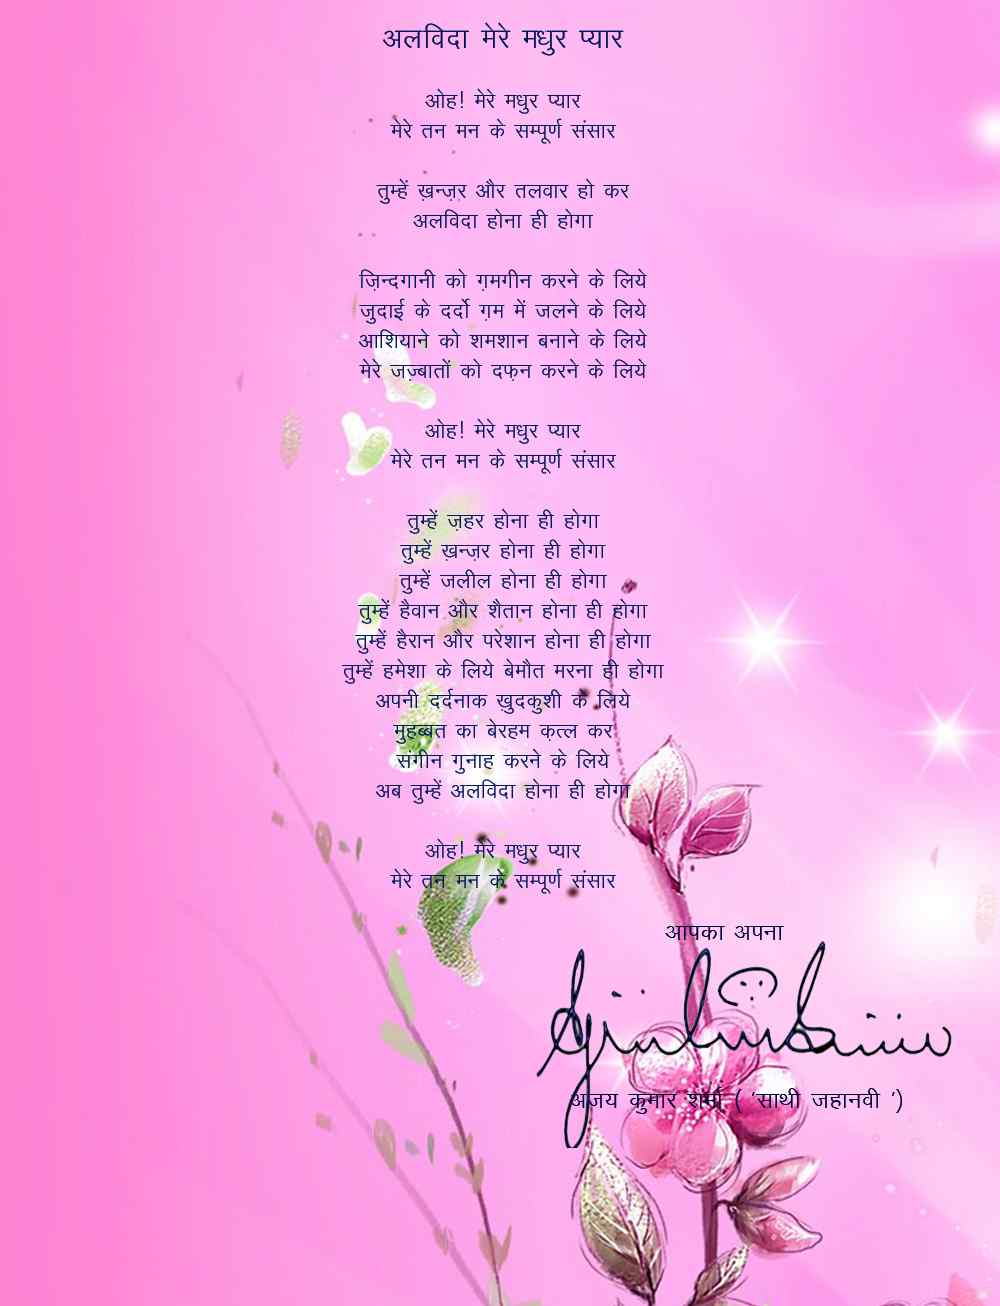 अलविदा मेरे मधुर प्यार
ओह! मेरे मधुर प्यार
मेरे तन मन के सम्पूर्ण संसार
तुम्हें ख़न्ज़र और तलवार हो कर
अलविदा होना ही होगा
ज़िन्दगानी को ग़मगीन करने के लिये
जुदाई के दर्दो ग़म में जलने के लिये
आशियाने को शमशान बनाने के लिये
मेरे जज़्बातों को दफ़न करने के लिये
ओह! मेरे मधुर प्यार
मेरे तन मन के सम्पूर्ण संसार
तुम्हें ज़हर होना ही होगा
तुम्हें ख़न्ज़र होना ही होगा
तुम्हें जलील होना ही होगा
तुम्हें हैवान और शैतान होना ही होगा
तुम्हें हैरान और परेशान होना ही होगा
तुम्हें हमेशा के लिये बेमौत मरना ही होगा
अपनी दर्दनाक ख़ुदकुशी के लिये
मुहब्बत का बेरहम क़त्ल कर
संगीन गुनाह करने के लिये
अब तुम्हें अलविदा होना ही होगा
ओह! मेरे मधुर प्यार
मेरे तन मन के सम्पूर्ण संसार
आपका अपना
अजय कुमार शर्मा ( ‘साथी जहानवी ’)